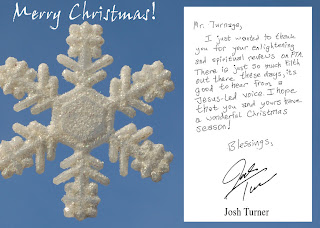 Merry Christmas!
Mr. Turnage,
I just wanted to thank
you for your enlightening
and spiritual reviews on PTA.
There is just so much filth
out there these days, it's
good to hear from a
Jesus-Led voice. I hope
that you and yours have
a wonderful Christmas
season!
Blessings,
Josh Turner